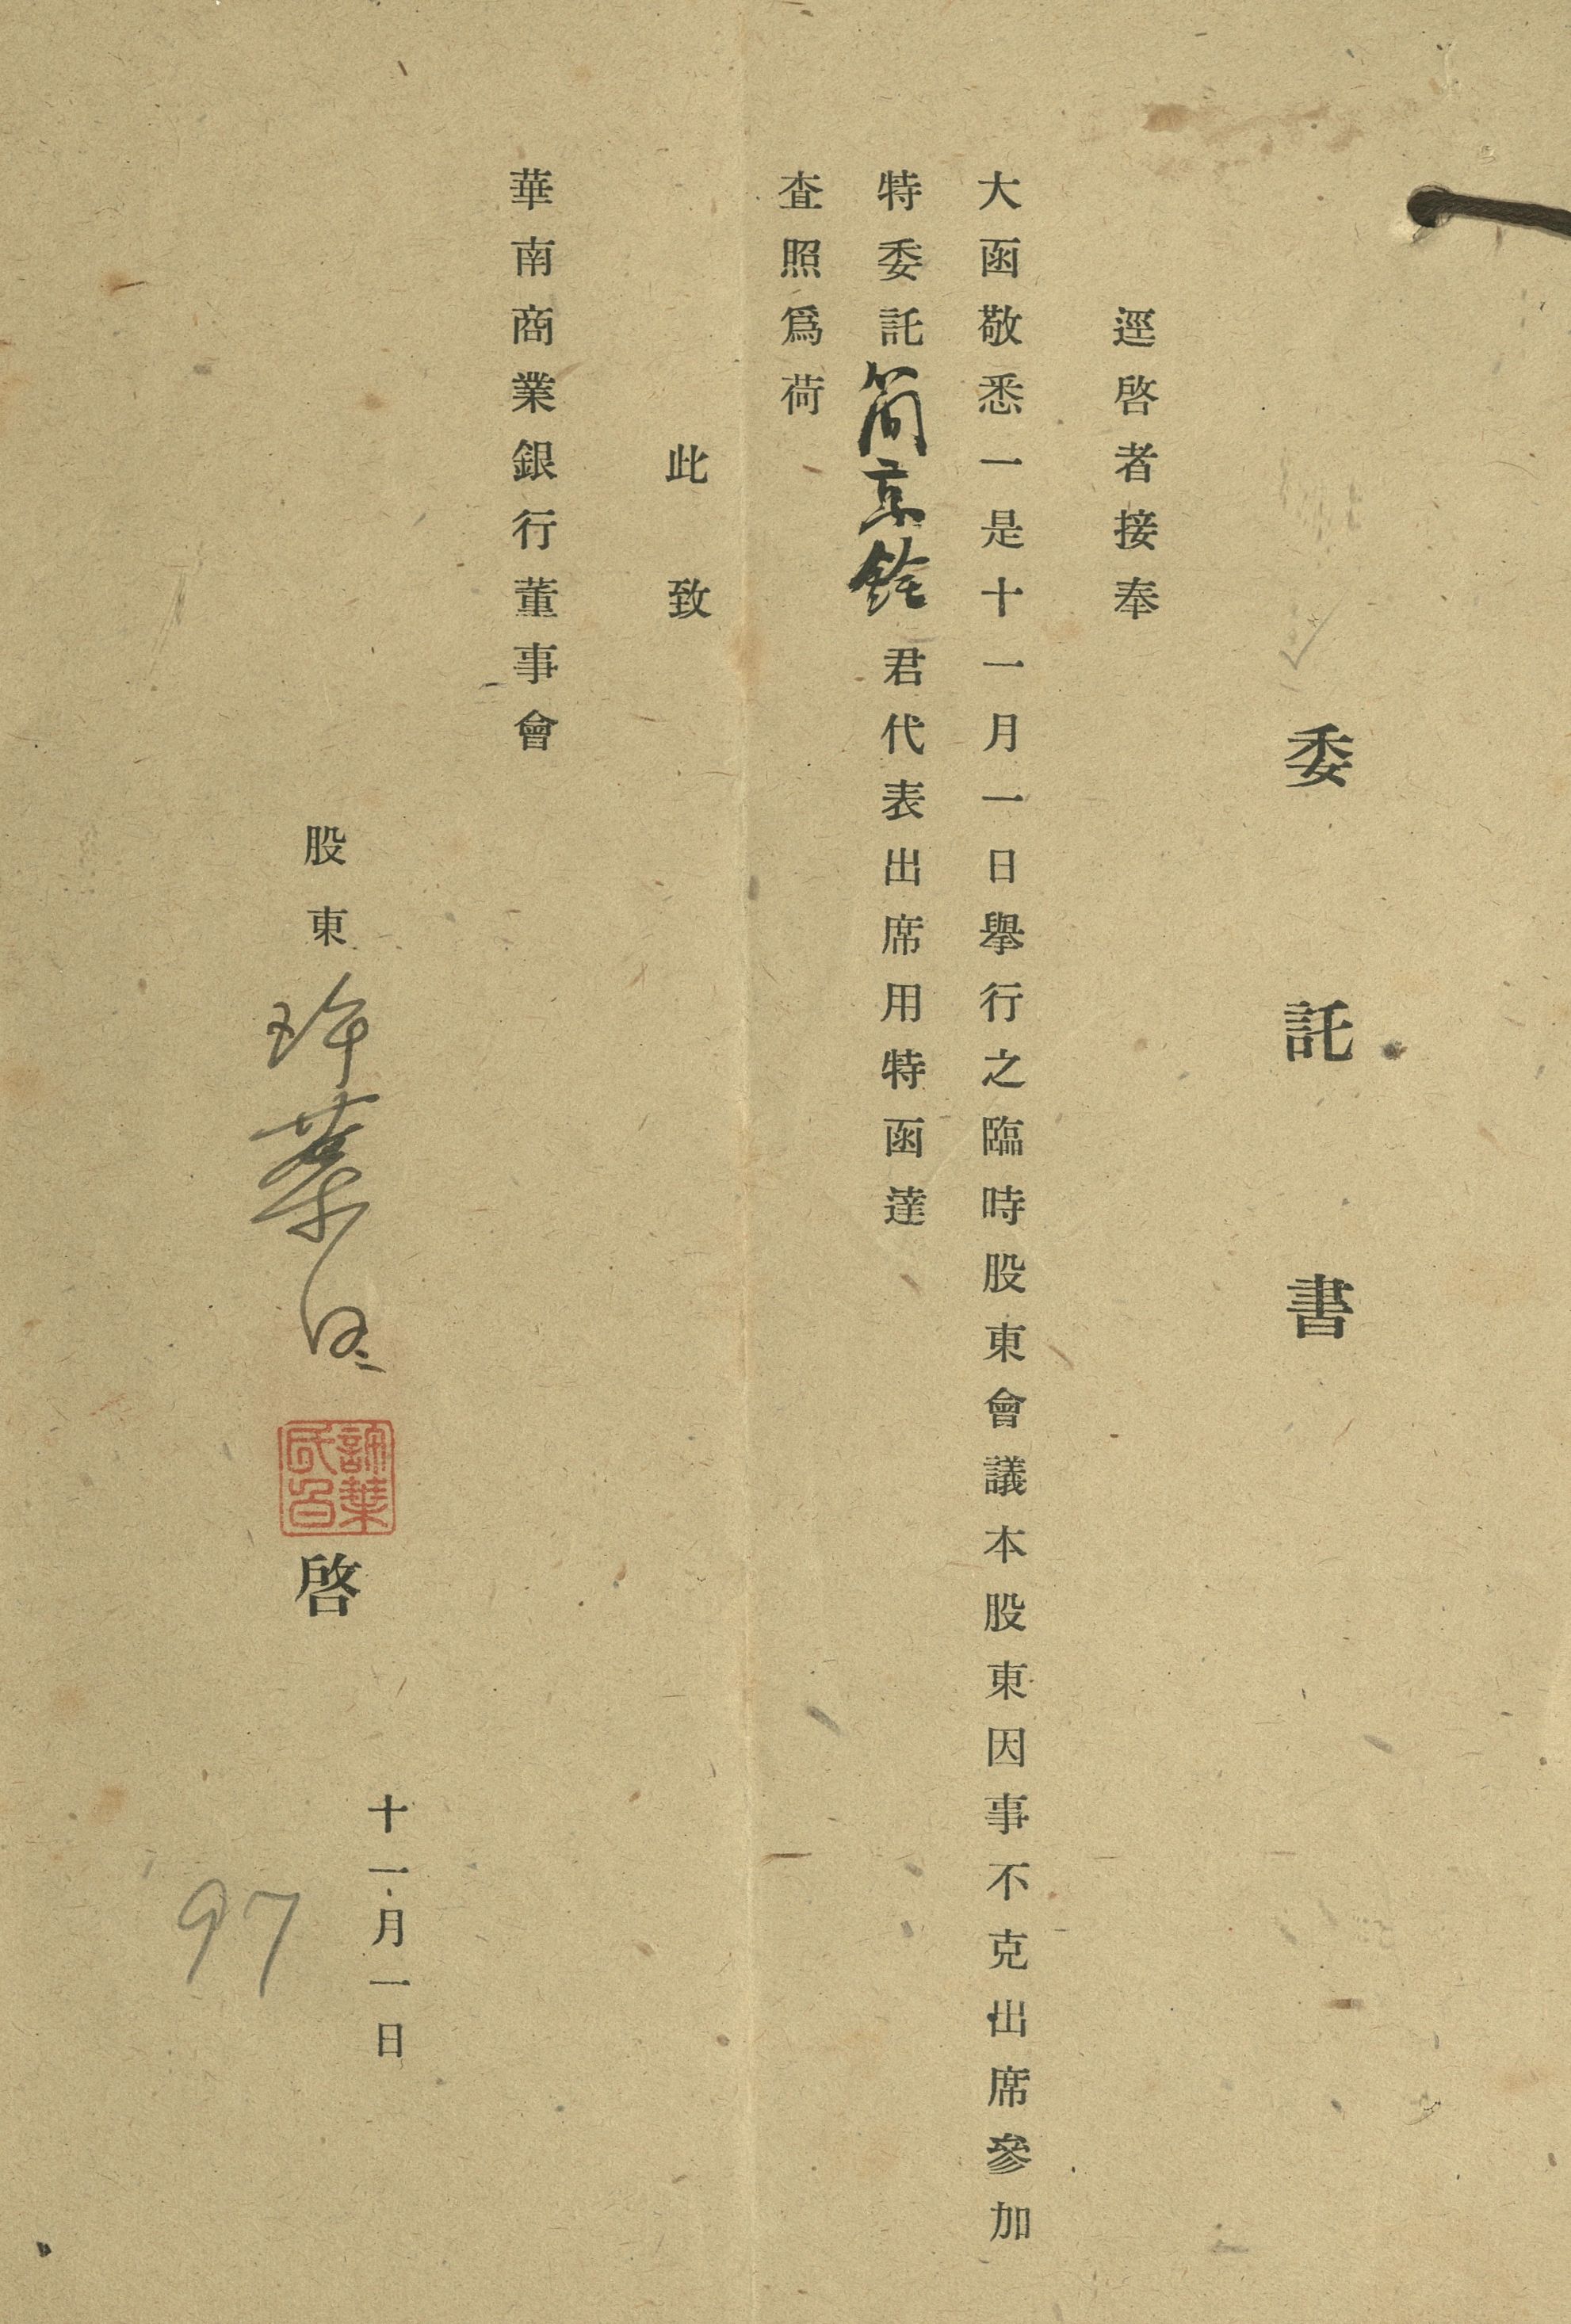 委託書
逕啓者接奉
大函敬悉一是十一月一日舉行之臨時股東會議本股東因事不克出席參加
特委託簡京銓君代表出席用特函達
査照爲荷
此致
華南商業銀行董事會
十一月一日
股東許葉 啓
97